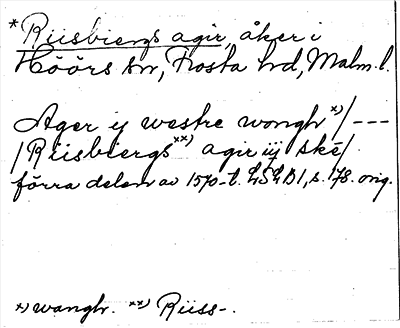 *Riisbiergs agir, åker i
Höörs sn, Frosta hd, Malm.l.
Ager ij westre wongh x)/---
/Riisbiergs xx) agir iij ské/
förra delen av 1570-t. LSLB1, s. 178. orig.
x) wangh. xx) Riiss-.